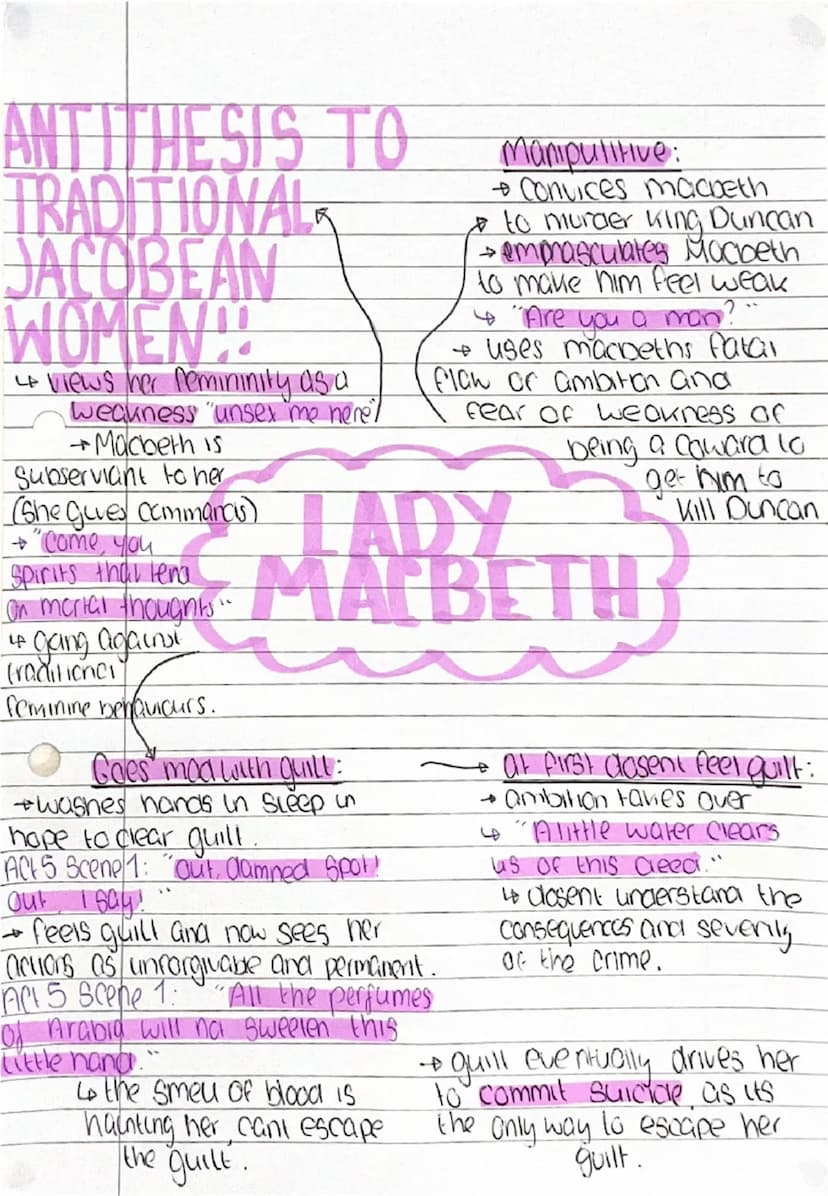 ANTITHESIS TO
TRADITIONAL
JACOBEAN
WOMEN!!
↳ views her femininity as a
weakness "unsex me here"
→ Macbeth is
subserviant to her
(she gives commands)
→ "Come, you
spirits that tend
on mortal thoughts"
↳ going against
traditional
feminine behaviours.
Manipulitive:
→ Convices macbeth
to murder King Duncan
→ emmasculates Macbeth
to make him feel weak
↳ "Are you a man?"
→ uses macbeths fatal
flaw of ambiton and
fear of weakness of
being a coward to
get him to
kill Duncan
LADY
MACBETH
Goes mad with guilt:
→ washes hands in sleep in
hope to clear guilt.
Act 5 Scene 1: "Out, damned spot!
out, I say!"
→ feels guilt and now sees her
actions as unforgivable and permanent.
Act 5 Scene 1: "All the perfumes
of Arabia will not sweeten this
little hand."
↳ the smell of blood is
haunting her, cant escape
the guilt.
at first dosent feel guilt:
→ ambition takes over
↳ "A little water clears
us of this deed."
↳ dosent understand the
consequences and severity
of the crime.
→ guilt eventually drives her
to commit suicide, as its
the only way to escape her
guilt.